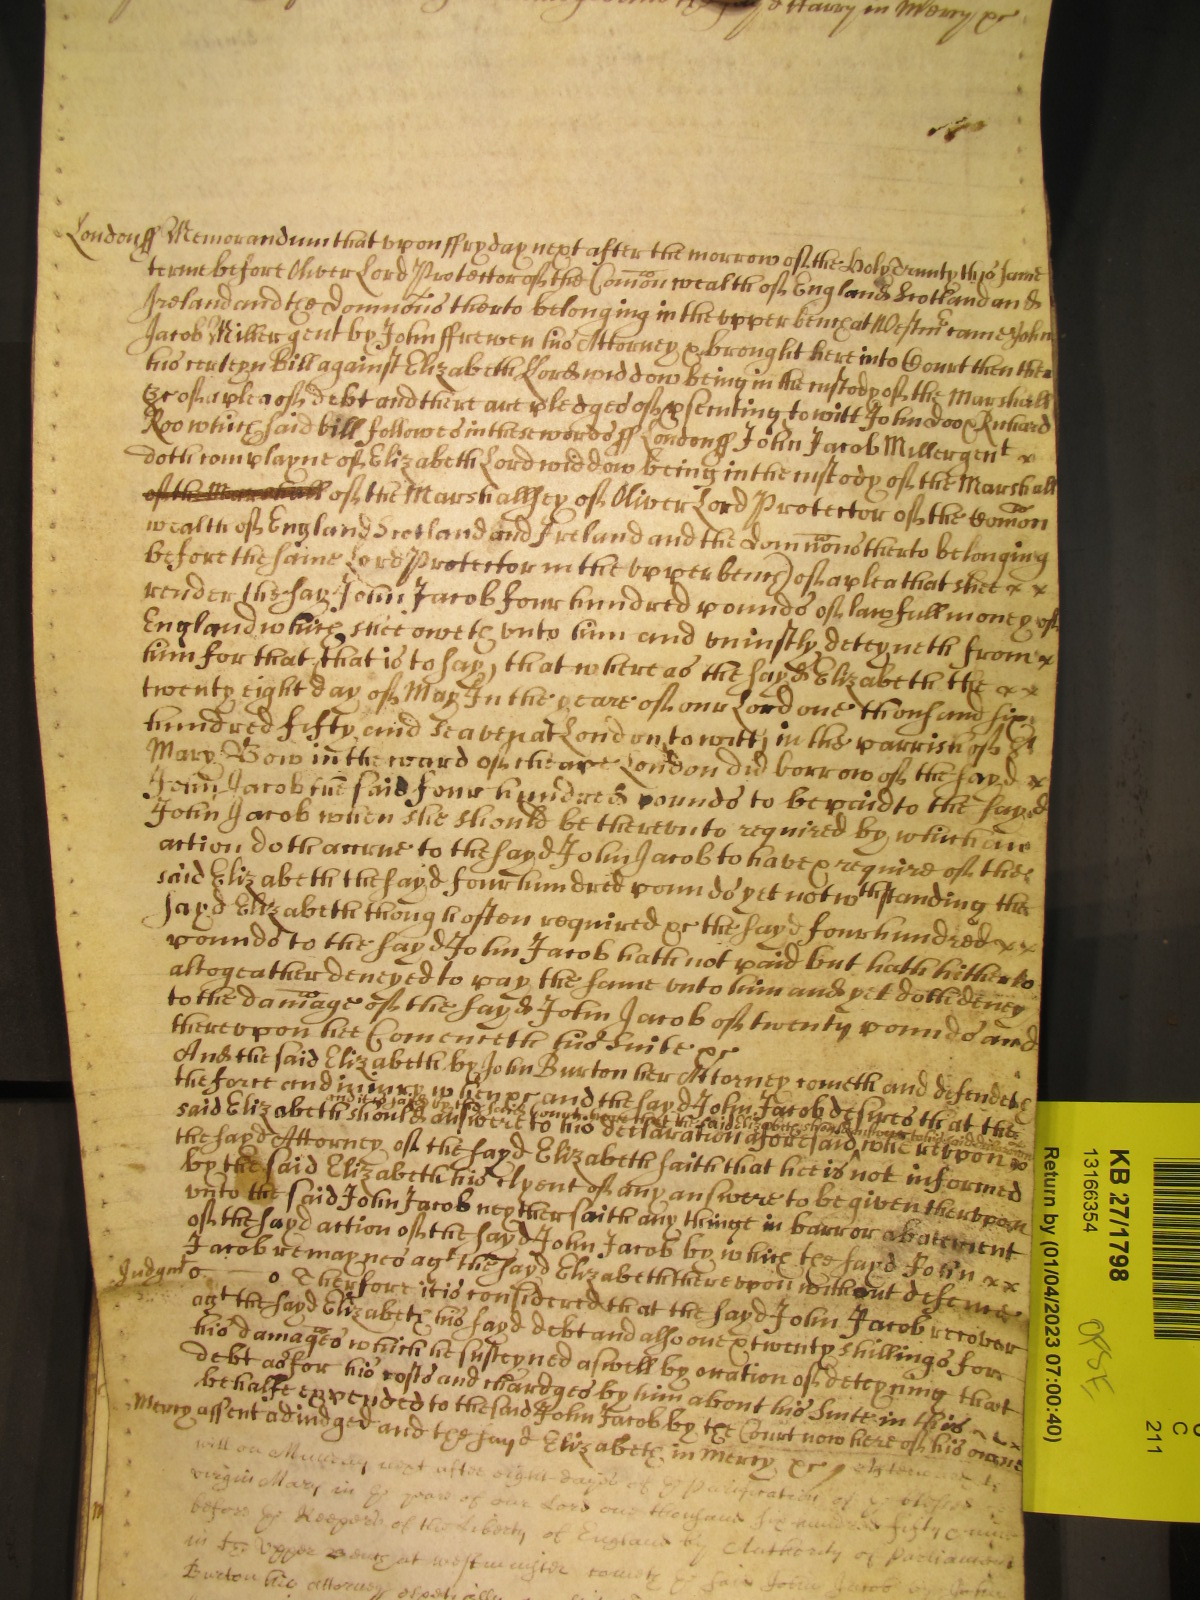 Harry in Mercy &c
Londonss Memorandum that vpon ffryday next after the morrow of the Holy Trinity this same
terme before Oliver Lord Protector of the Comōn wealth of England Scotland and
Ireland and the Dominiōns therto belonging in the vpper bench at Westmr came John
Jacob Miller gent by John ffrewen his Attorney & brought here into Court then there
his certeyn Bill against Elizabeth Lord widdow being in the custody of the Marshall
&c of a plea of debt and there are pledges of psenting to witt John Doo & Richard
Roo which said bill followes in these words ss Londonss John Jacob Miller gent
doth complayne of Elizabeth Lord widdow being in the custody of the Marshall
of the Marshall of the Marshallsey of Oliver Lord Protector of the Comōn
wealth of England Scotland and Ireland and the Dominiōns therto belonging
before the same Lord Protector in the vpper bench of a plea that shee
render the say John Jacob four hundred pounds of lawfull money of
England which shee oweth vnto him and vniustly deteyneth from
him for that, that is to say, that where as the sayd Elizabeth the
twenty eight day of May In the yeare of our Lord one thousand six
hundred fifty and seaven at London, to witt, in the parrish of St
Mary Bow in the ward of cheape London did borrow of the sayd
John Jacob the said four hundred pounds to be paid to the sayd
John Jacob when she should be therevnto required by which an
action doth accrue to the sayd John Jacob to have & require of the
said Elizabeth the sayd four hundred pounds yet notwthstanding the
sayd Elizabeth though often required &c the sayd four hundred
pounds to the sayd John Jacob hath not paid but hath hitherto
altogeather denyed to pay the same vnto him and yet doth deney
to the damage of the sayd John Jacob of twenty pounds and
therevpon hee Comenceth his suite &c
And the said Elizabeth by John Burton her Attorney cometh and defendeth
the force and iniury when &c and the sayd John Jacob desires that the
said Elizabeth should answere to his declaration aforesaid wherevpon
the sayd Attorney of the sayd Elizabeth saith that hee is not informed
by the said Elizabeth his clyent of any answere to be given thervpon
vnto the said John Jacob neyther saith any thinge in barr or abatement
of the sayd action of the sayd John Jacob by which the sayd John
Jacob remaynes agt the sayd Elizabeth therevpon without defence
Judgmt Therfore it is considered that the sayd John Jacob recover
agt the sayd Elizabeth his sayd debt and also one & twenty shillings for
his damages which he susteyned aswell by occation of deteyning that
debt as for his costs and chardges by him about his suite in this
behalfe expended to the said John Jacob by the Court now here of his owne
Mercy assent adiudged and the sayd Elizabeth in mercy &c
will on Munday next after eight dayes of ye Purification of ye blessed
virgin Mary in ye yeare of our Lord one thousand six hundred fifty
before ye Keepers of the Liberty of England by Authority of Parliament
in the Vpper Bench at westminster cometh ye said John Jacob by John
Burton his attorney
KB 27/1798
13166354
Return by (01/04/2023 07:00:40)
C
211